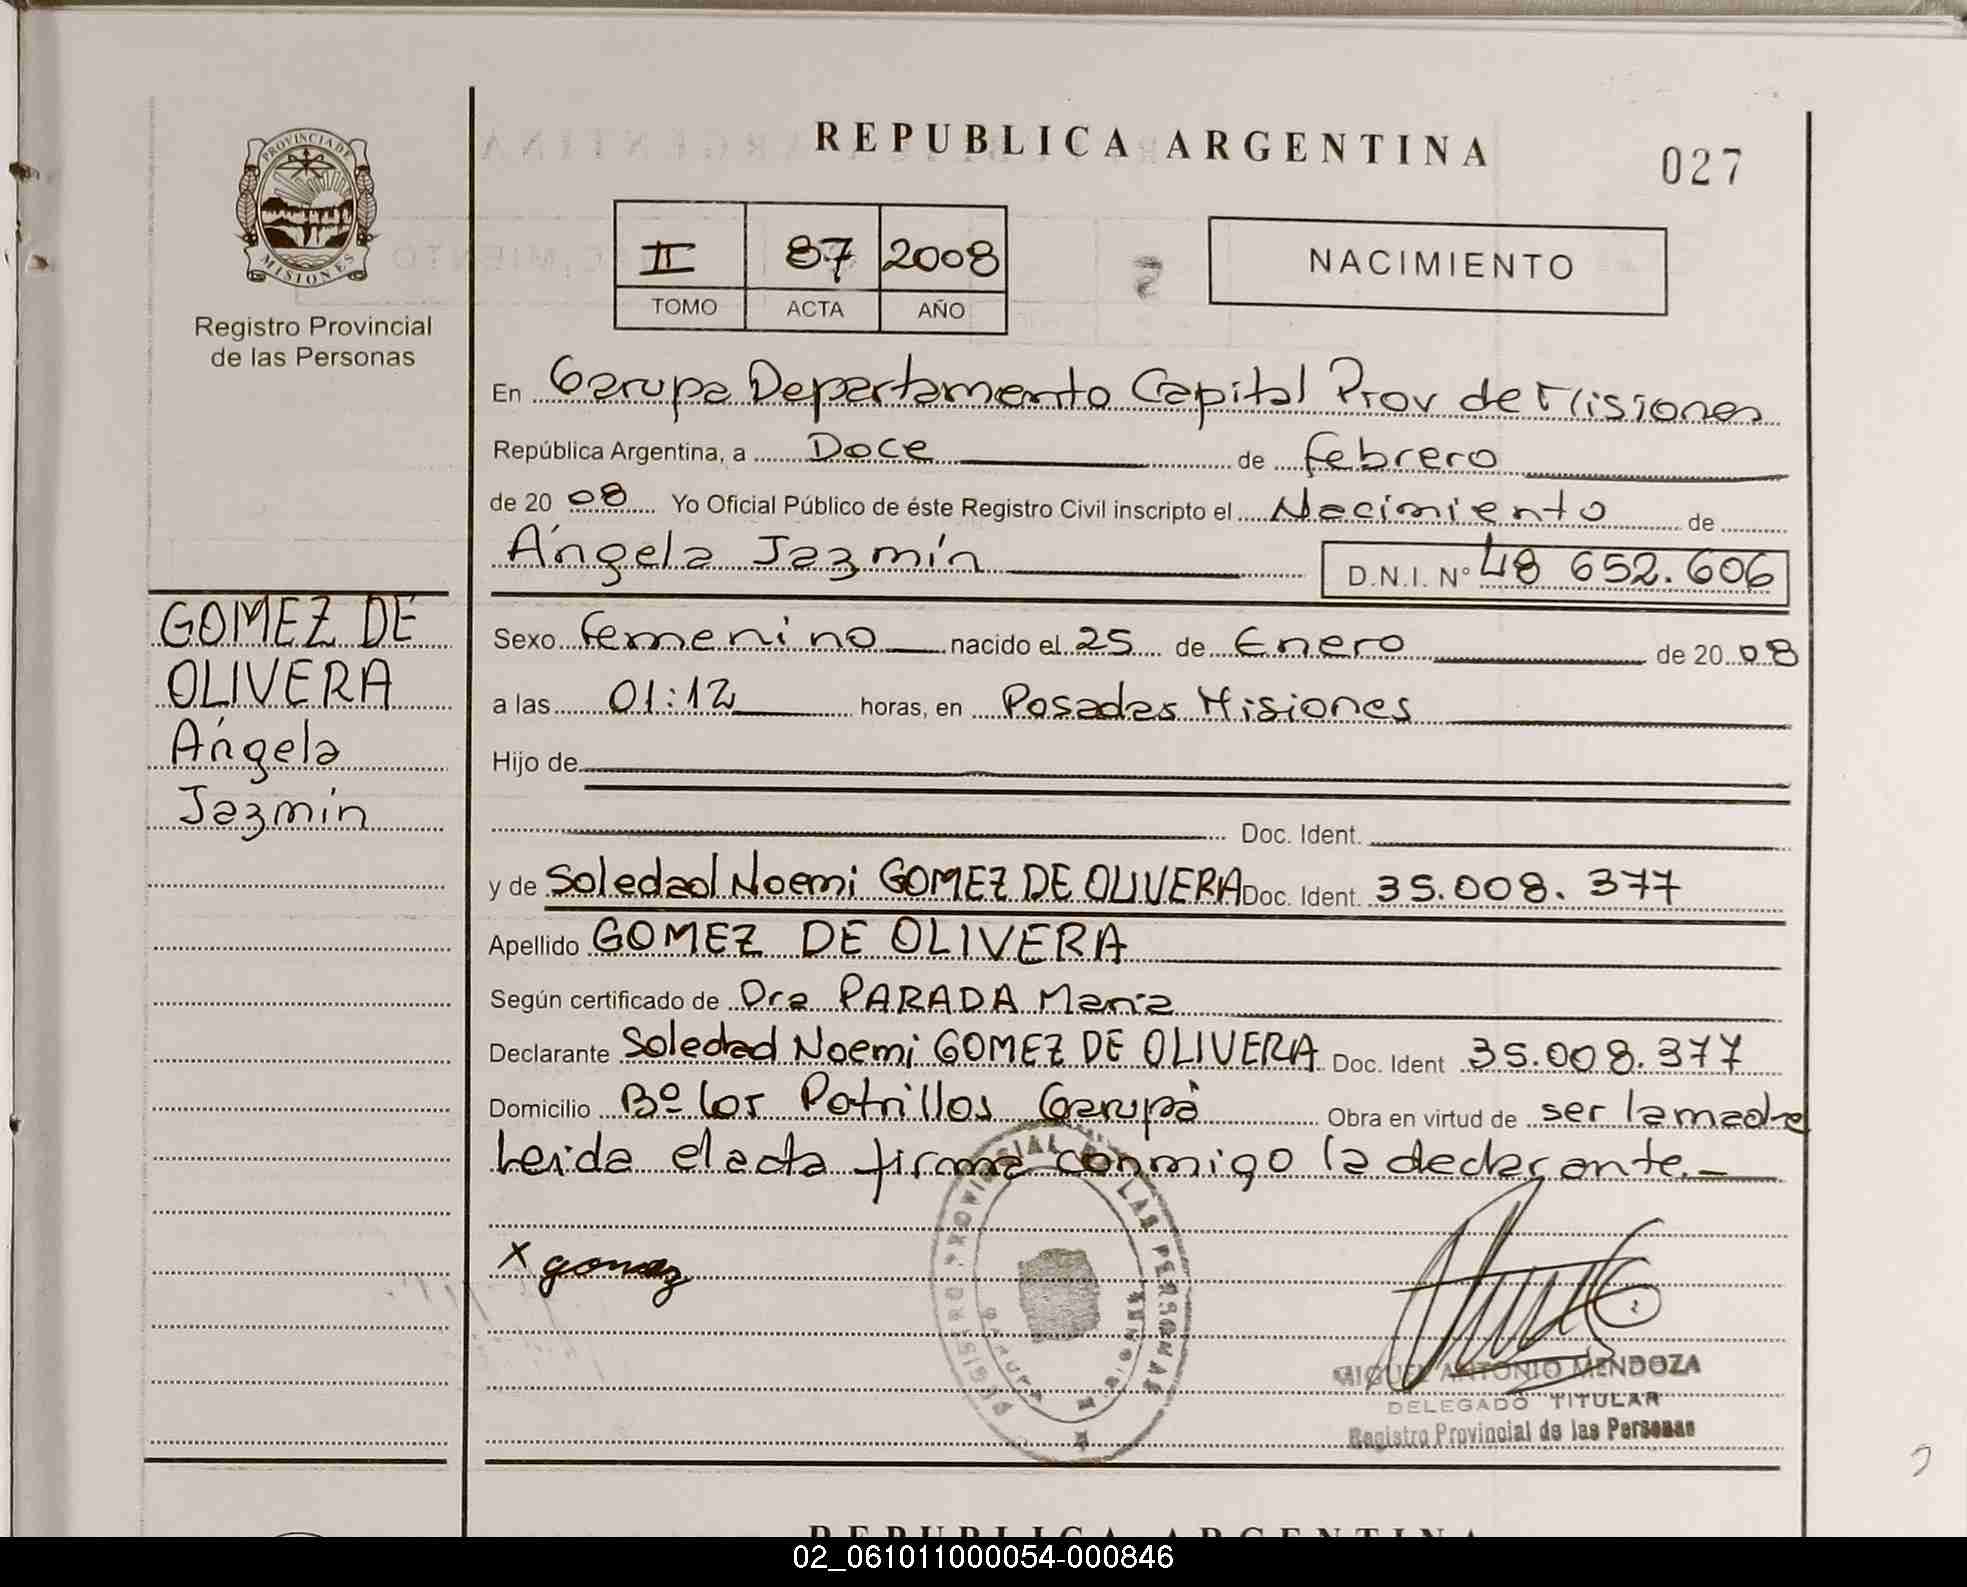 REPUBLICA ARGENTINA
027
PROVINCIA DE
MISIONES
Registro Provincial
de las Personas
II 87 2008
TOMO ACTA AÑO
NACIMIENTO
En Garupa Departamento Capital Prov de Misiones
República Argentina, a Doce de febrero
de 20 08 Yo Oficial Público de éste Registro Civil inscripto el Nacimiento de
Ángela Jazmín D.N.I. Nº 48 652.606
GOMEZ DE
OLIVERA
Ángela
Jazmín
Sexo femenino nacido el 25 de Enero de 20 08
a las 01:12 horas, en Posadas Misiones
Hijo de
Doc. Ident.
y de Soledad Noemi GOMEZ DE OLIVERA Doc. Ident. 35.008.377
Apellido GOMEZ DE OLIVERA
Según certificado de Dra PARADA María
Declarante Soledad Noemi GOMEZ DE OLIVERA Doc. Ident 35.008.377
Domicilio Bº los Potrillos Garupá Obra en virtud de ser la madre
Leida el acta firma conmigo la declarante.
x gomez
REGISTRO PROVINCIAL DE LAS PERSONAS
GARUPA
MISIONES
MIGUEL ANTONIO MENDOZA
DELEGADO TITULAR
Registro Provincial de las Personas
REPUBLICA ARGENTINA
02_061011000054-000846